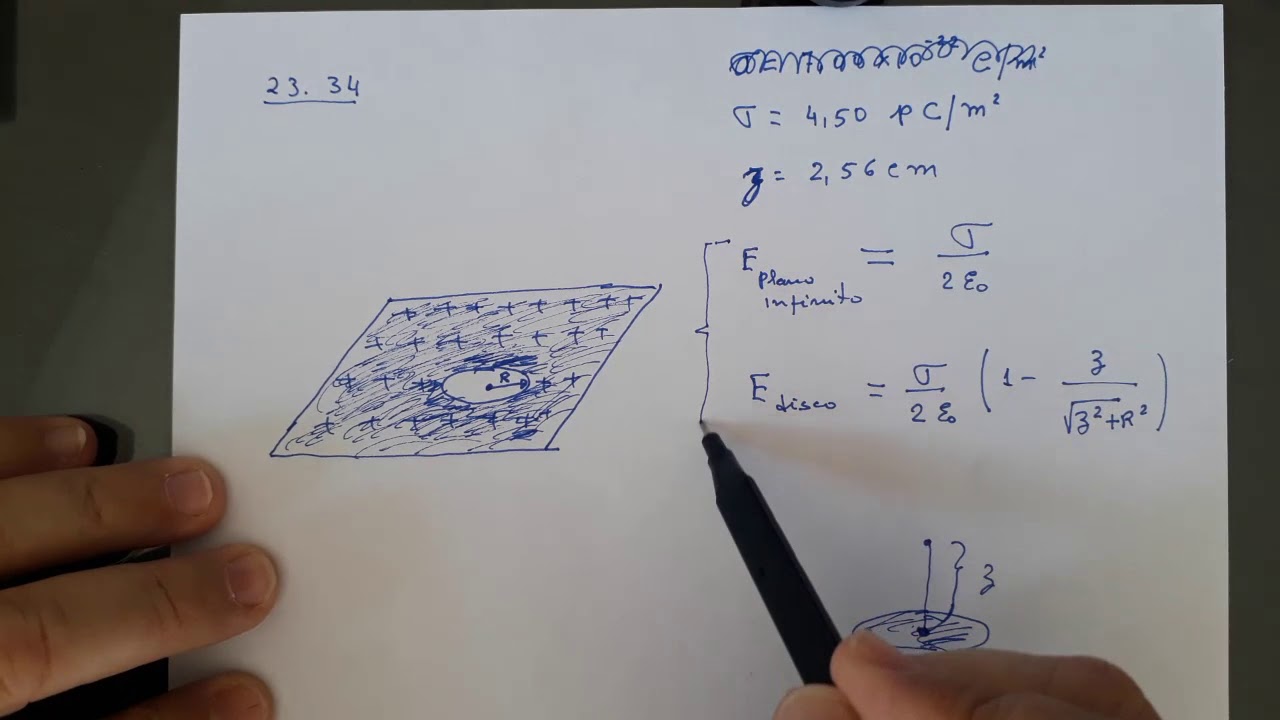 23. 34
σ = 4,50 pC/m²
z = 2,56 cm
E plano infinito = σ / 2 ε₀
E disco = σ / 2 ε₀ (1 - z / √z²+R²)
R
z